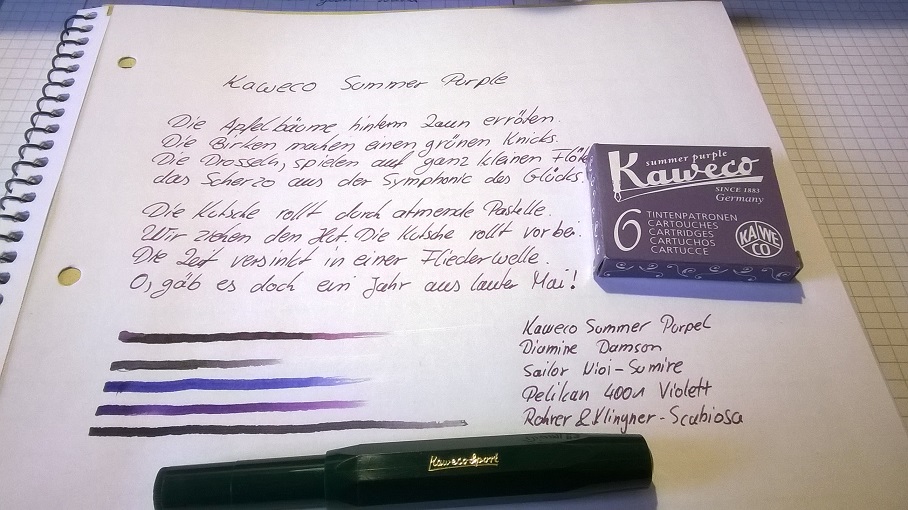 Kaweco Summer Purple
Die Apfelbäume hinterm Zaun erröten.
Die Birken machen einen grünen Knicks.
Die Drosseln, spielen auf ganz kleinen Flöte
das Scherzo aus der Symphonie des Glücks.
Die Kutsche rollt durch atmende Pastelle.
Wir ziehen den Hut. Die Kutsche rollt vorbei.
Die Zeit versinkt in einer Fliederwelle.
O, gäb es doch ein Jahr aus lauter Mai!
summer purple
Kaweco
SINCE 1883
Germany
6
TINTENPATRONEN
CARTOUCHES
CARTRIDGES
CARTUCHOS
CARTUCCE
KA WE
CO
Kaweco Summer Purpel
Diamine Damson
Sailor Nioi-Sumire
Pelikan 4001 Violett
Rohrer & Klingner - Scabiosa
Kaweco Sport